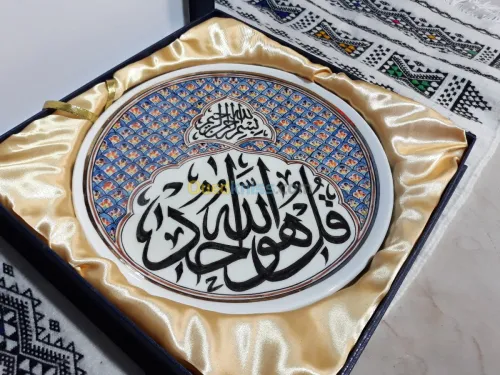 بسم الله الرحمن الرحيم
قل هو الله أحد